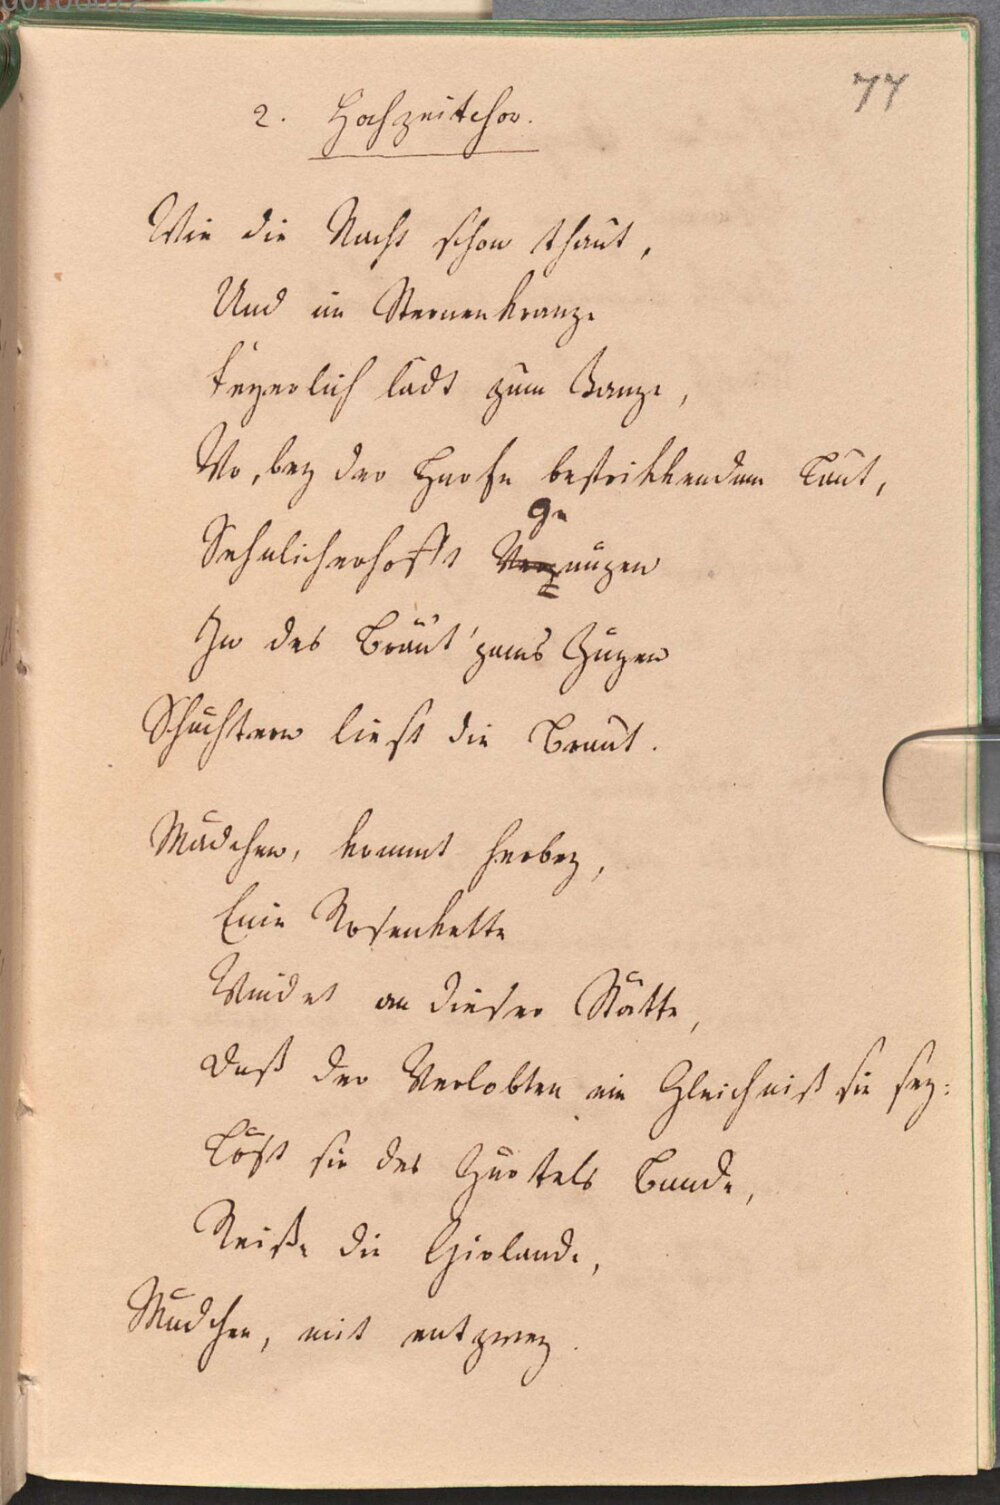 77
2. Hochzeitchor.
Wie die Nacht schon thaut,
Und im Sternenkranze
Feyerlich lädt zum Tanze,
Wo, bey der Harfe bestrikkendem Laut,
Ge
Sehnlicherhofft Vergnügen
In des Bräut'gams Zügen
Schüchtern liest die Braut.
Mädchen, kommt herbey,
Eine Rosenkette
Windet an dieser Stätte,
Daß der Verlobten ein Gleichniß sie sey:
Löst sie des Gürtels Bande,
Reiße die Girlande,
Mädchen, mit entzwey.